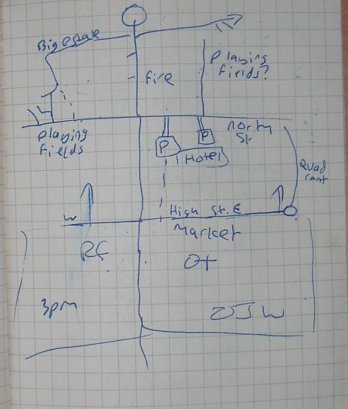 Big estate
Fire
Playing
Fields?
Playing
Fields
P
P
North
St
Hotel
Quad
rant
W
High St. E
Market
RF
OT
3pm
ZJW